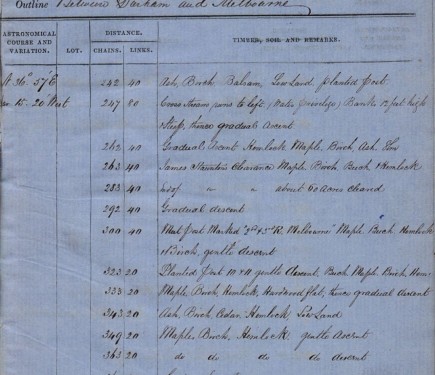 Outline Between Durham and Melbourne
ASTRONOMICAL COURSE AND VARIATION. LOT. DISTANCE. CHAINS. LINKS. TIMBER, SOIL AND REMARKS.
N 36° 57' E 242 40 Ash, Birch Balsam, Low Land planted Post
15. 20 West 247 80 Cross stream runs to left Banks 12 feet high
Steep, thence gradual ascent
262 40 Gradual Hemlock Maple, Birch, Ash
263 40 James Clearance Maple, Birch Beech & Hemlock
283 40 " " about 60 acres
292 40 Gradual descent
300 40 Post Marked R. Melbourne Maple, Birch, Hemlock
& Birch, gentle descent
323 20 Planted Post 10 & 11 gentle descent, Birch Maple, Birch
333 20 Maple, Birch, Hemlock, Hardwood flat, thence gradual descent
343 20 Ash, Birch, Cedar, Hemlock, Low Land
349 20 Maple, Birch, Hemlock gentle Ascent
363 20 do do do do descent